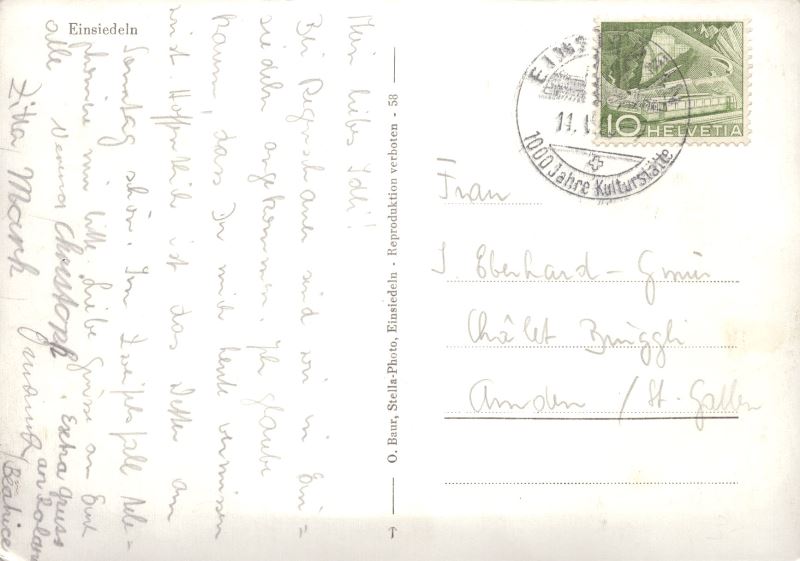 Einsiedeln
Mein liebes Idli!
Bei Regenschauer sind wir in Ein=
siedeln angekommen. Ich glaube
kaum, dass Du mich heute vermissen
wirst. Hoffentlich ist das Wetter am
Sonntag schön. Im Zweifelsfall tele=
phoniere mir bitte. Liebe Grüsse an Euch
alle
Verena Christoph Extra gruss
an Roland
Zitta, Mark
Beatrice
O. Baur, Stella-Photo, Einsiedeln - Reproduktion verboten - 58
EINSIEDELN
11.
1000 Jahre Kulturstätte
10 HELVETIA
Frau
I. Eberhard - Gmür
Châlet Brüggli
Amden / St. Gallen